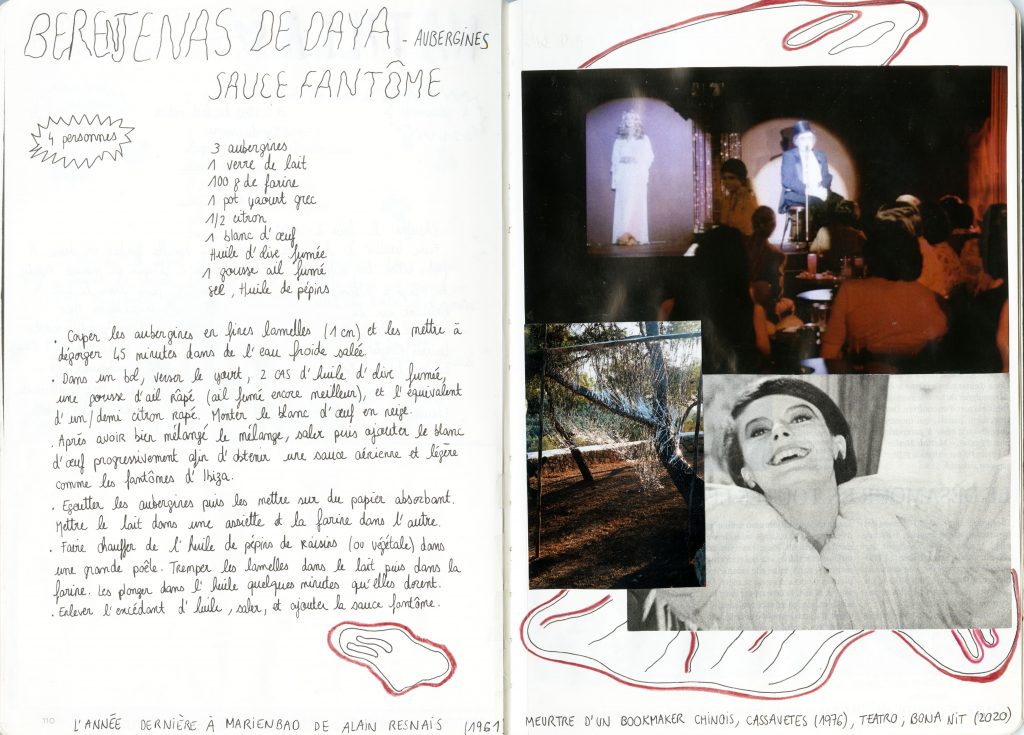 BERENJENAS DE DAYA - AUBERGINES
SAUCE FANTÔME
4 personnes
3 aubergines
1 verre de lait
100 g de farine
1 pot yaourt grec
1/2 citron
1 blanc d'œuf
Huile d'olive fumée
1 gousse ail fumé
Sel, Huile de pépins
. Couper les aubergines en fines lamelles (1 cm) et les mettre à
dégorger 45 minutes dans de l'eau froide salée.
. Dans un bol, verser le yourt, 2 CAS d'huile d'olive fumée,
une pousse d'ail rapé (ail fumé encore meilleur), et l'équivalent
d'un/demi citron rapé. Monter le blanc d'œuf en neige.
. Après avoir bien mélangé le mélange, saler puis ajouter le blanc
d'œuf progressivement afin d'obtenir une sauce aérienne et légère
comme les fantômes d'Ibiza.
. Egoutter les aubergines puis les mettre sur du papier absorbant.
Mettre le lait dans une assiette et la farine dans l'autre.
. Faire chauffer de l'huile de pépins de raisins (ou végétale) dans
une grande poêle. Tremper les lamelles dans le lait puis dans la
farine. Les plonger dans l'huile quelques minutes qu'elles dorent.
. Enlever l'excédant d'huile, saler, et ajouter la sauce fantôme.
110
L'ANNÉE DERNIÈRE À MARIENBAD DE ALAIN RESNAIS (1961)
MEURTRE D'UN BOOKMAKER CHINOIS, CASSAVETES (1976), TEATRO ; BONA NIT (2020)